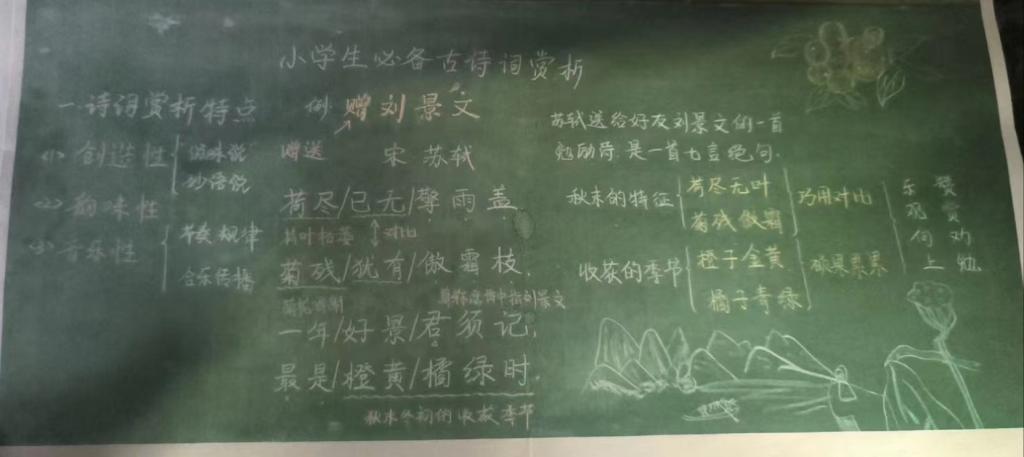 小学生必备古诗词赏析
一、诗词赏析特点
(1) 创造性
滋味说
妙悟说
(2) 韵味性
(3) 音乐性
节奏规律
音乐传播
例: 赠刘景文
赠送 宋 苏轼
荷尽/已无/擎雨盖
荷叶枯萎 对比
菊残/犹有/傲霜枝.
一年/好景/君须记,
最是/橙黄/橘绿时.
秋末冬初的收获季节
苏轼送给好友刘景文的一首
勉励诗.是一首七言绝句.
秋末的特征
荷尽无叶
菊残傲霜
巧用对比
收获的季节
橙子金黄
橘子青绿
硕果累累
乐观向上
赞赏劝勉